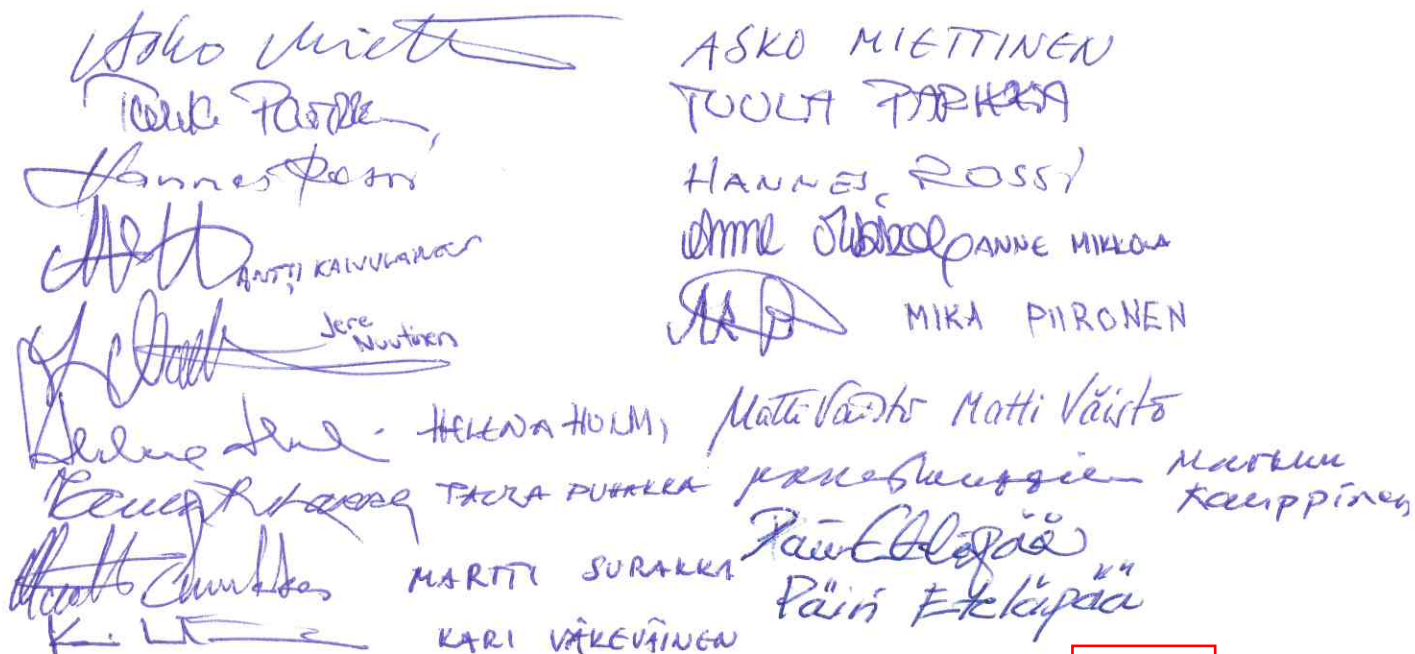 Asko Miett ASKO MIETTINEN
TUULA PARKKA
Hannes Rossi HANNES ROSSI
ANTTI KAIVULAINEN Anne Mikkola ANNE MIKKOLA
Jere Nuutinen MIKA PIIRONEN
HELENA HULMI Matti Väistö Matti Väistö
TAURA PUHAKKA Markku Kauppinen
MARTTI SURAKKA Päivi Eteläpää
Päivi Eteläpää
KARI VÄKEVÄINEN